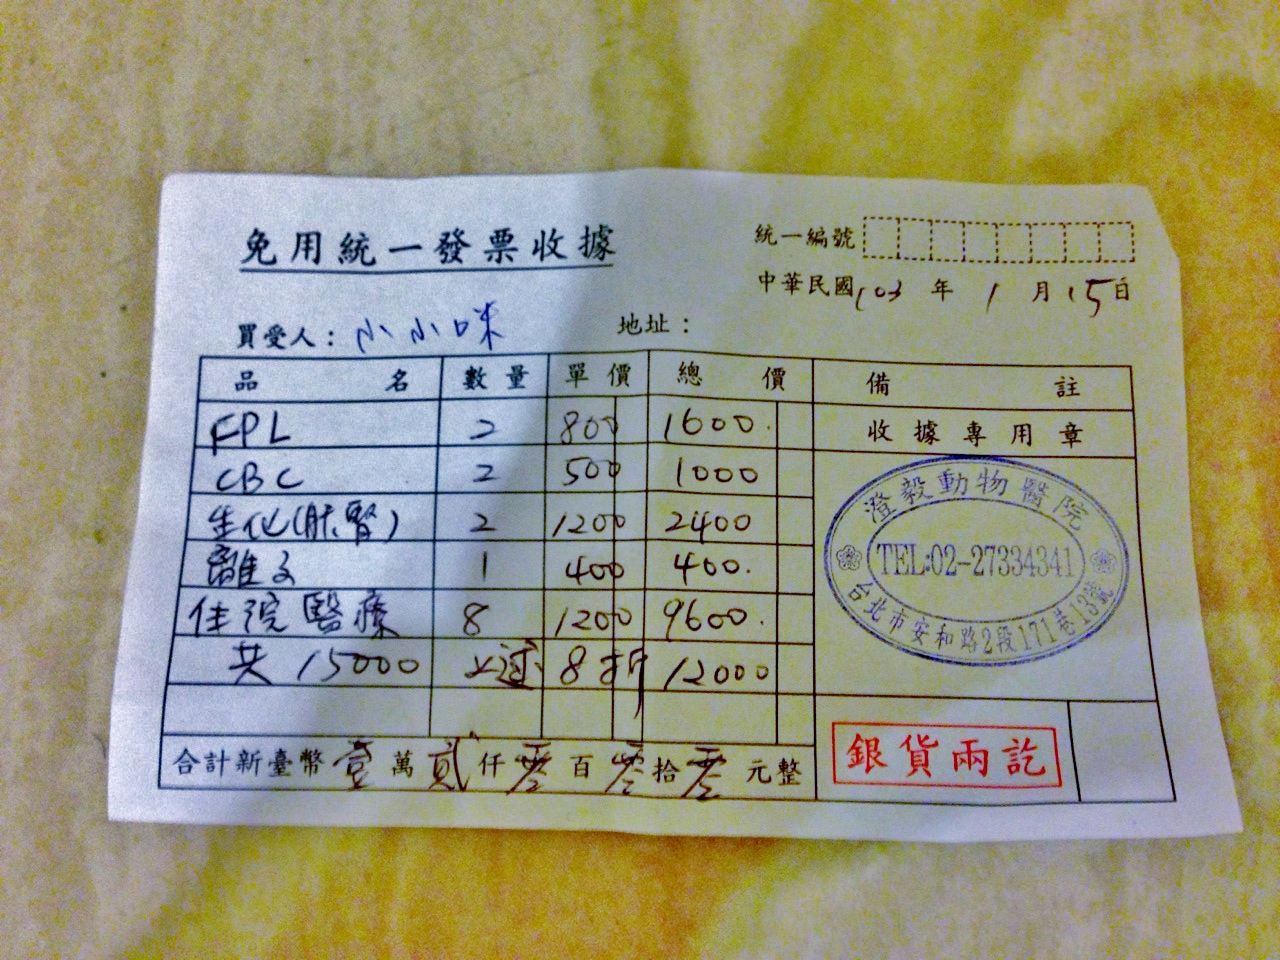 免用統一發票收據
統一編號
中華民國103年1月15日
買受人：小小咪
地址：
品名 數量 單價 總價 備註
FPL 2 800 1600.
CBC 2 500 1000
生化(肝腎) 2 1200 2400
離子 1 400 400.
住院醫療 8 1200 9600.
共15000 8折 12000
合計新臺幣壹萬貳仟零百零拾零元整
收據專用章
澄毅動物醫院
TEL:02-27334341
台北市安和路2段171巷13號
銀貨兩訖